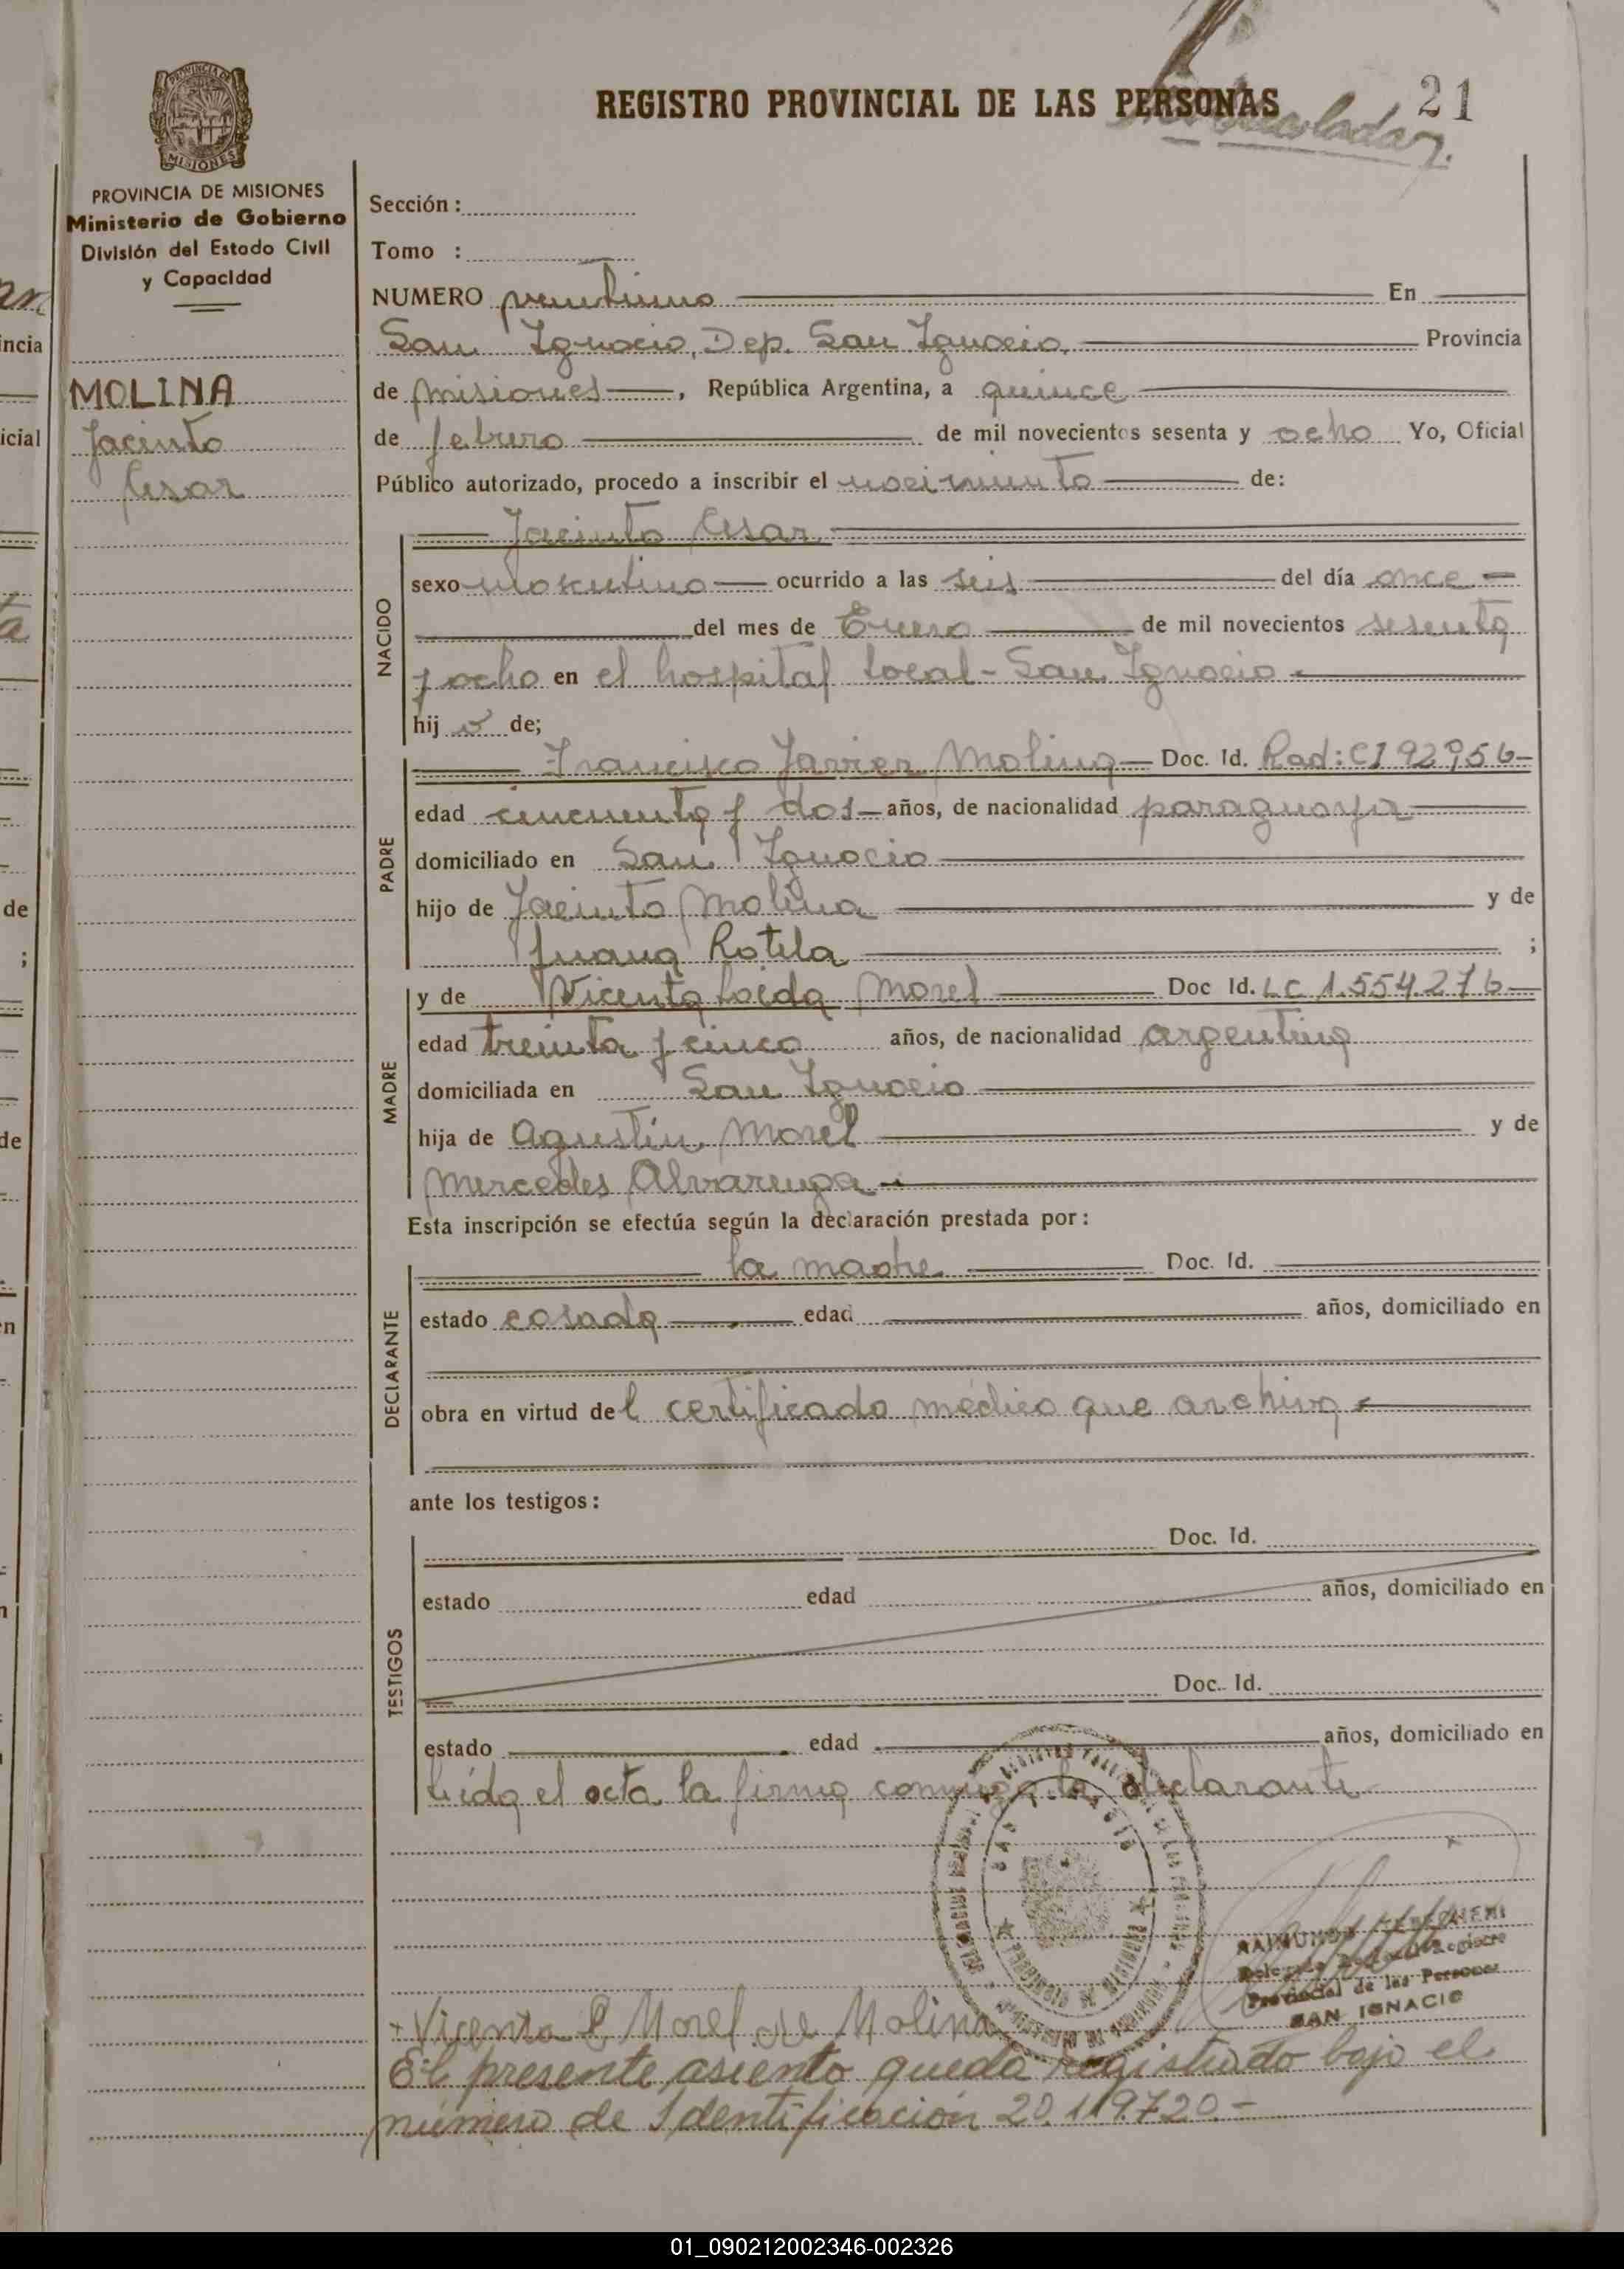 REGISTRO PROVINCIAL DE LAS PERSONAS
21
PROVINCIA DE
MISIONES
PROVINCIA DE MISIONES
Ministerio de Gobierno
División del Estado Civil
y Capacidad
MOLINA
Jacinto
Cesar
Sección :
Tomo :
NUMERO ventiuno En
San Ignacio, Dep. San Ignacio. Provincia
de misiones, República Argentina, a quince
de febrero de mil novecientos sesenta y ocho Yo, Oficial
Público autorizado, procedo a inscribir el nacimiento de:
NACIDO
Jacinto Cesar
sexo masculino ocurrido a las seis del día once
del mes de Enero de mil novecientos sesenta
y ocho en el hospital local - San Ignacio
hij o de;
PADRE
Francisco Javier Molina Doc. Id. Rad: CI 92956
edad cincuenta y dos años, de nacionalidad paraguaya
domiciliado en San Ignacio
hijo de Jacinto Molina y de
Juana Rotela ;
MADRE
y de Vicenta Morel Doc Id. LC 1.554.276
edad treinta y cinco años, de nacionalidad argentina
domiciliada en San Ignacio
hija de Agustín Morel y de
Mercedes Alvarenga
Esta inscripción se efectúa según la declaración prestada por :
DECLARANTE
la madre Doc. Id.
estado casada edad años, domiciliado en
obra en virtud del certificado médico que archivo
ante los testigos :
TESTIGOS
Doc. Id.
estado edad años, domiciliado en
Doc.. Id.
estado edad años, domiciliado en
Leída el acta la firma conmigo la declarante
RAIMUNDO
Provincial de las Personas
SAN IGNACIO
Vicenta L. Morel de Molina
El presente asiento queda registrado bajo el
número de Identificación 20.119.720.-
01_090212002346-002326